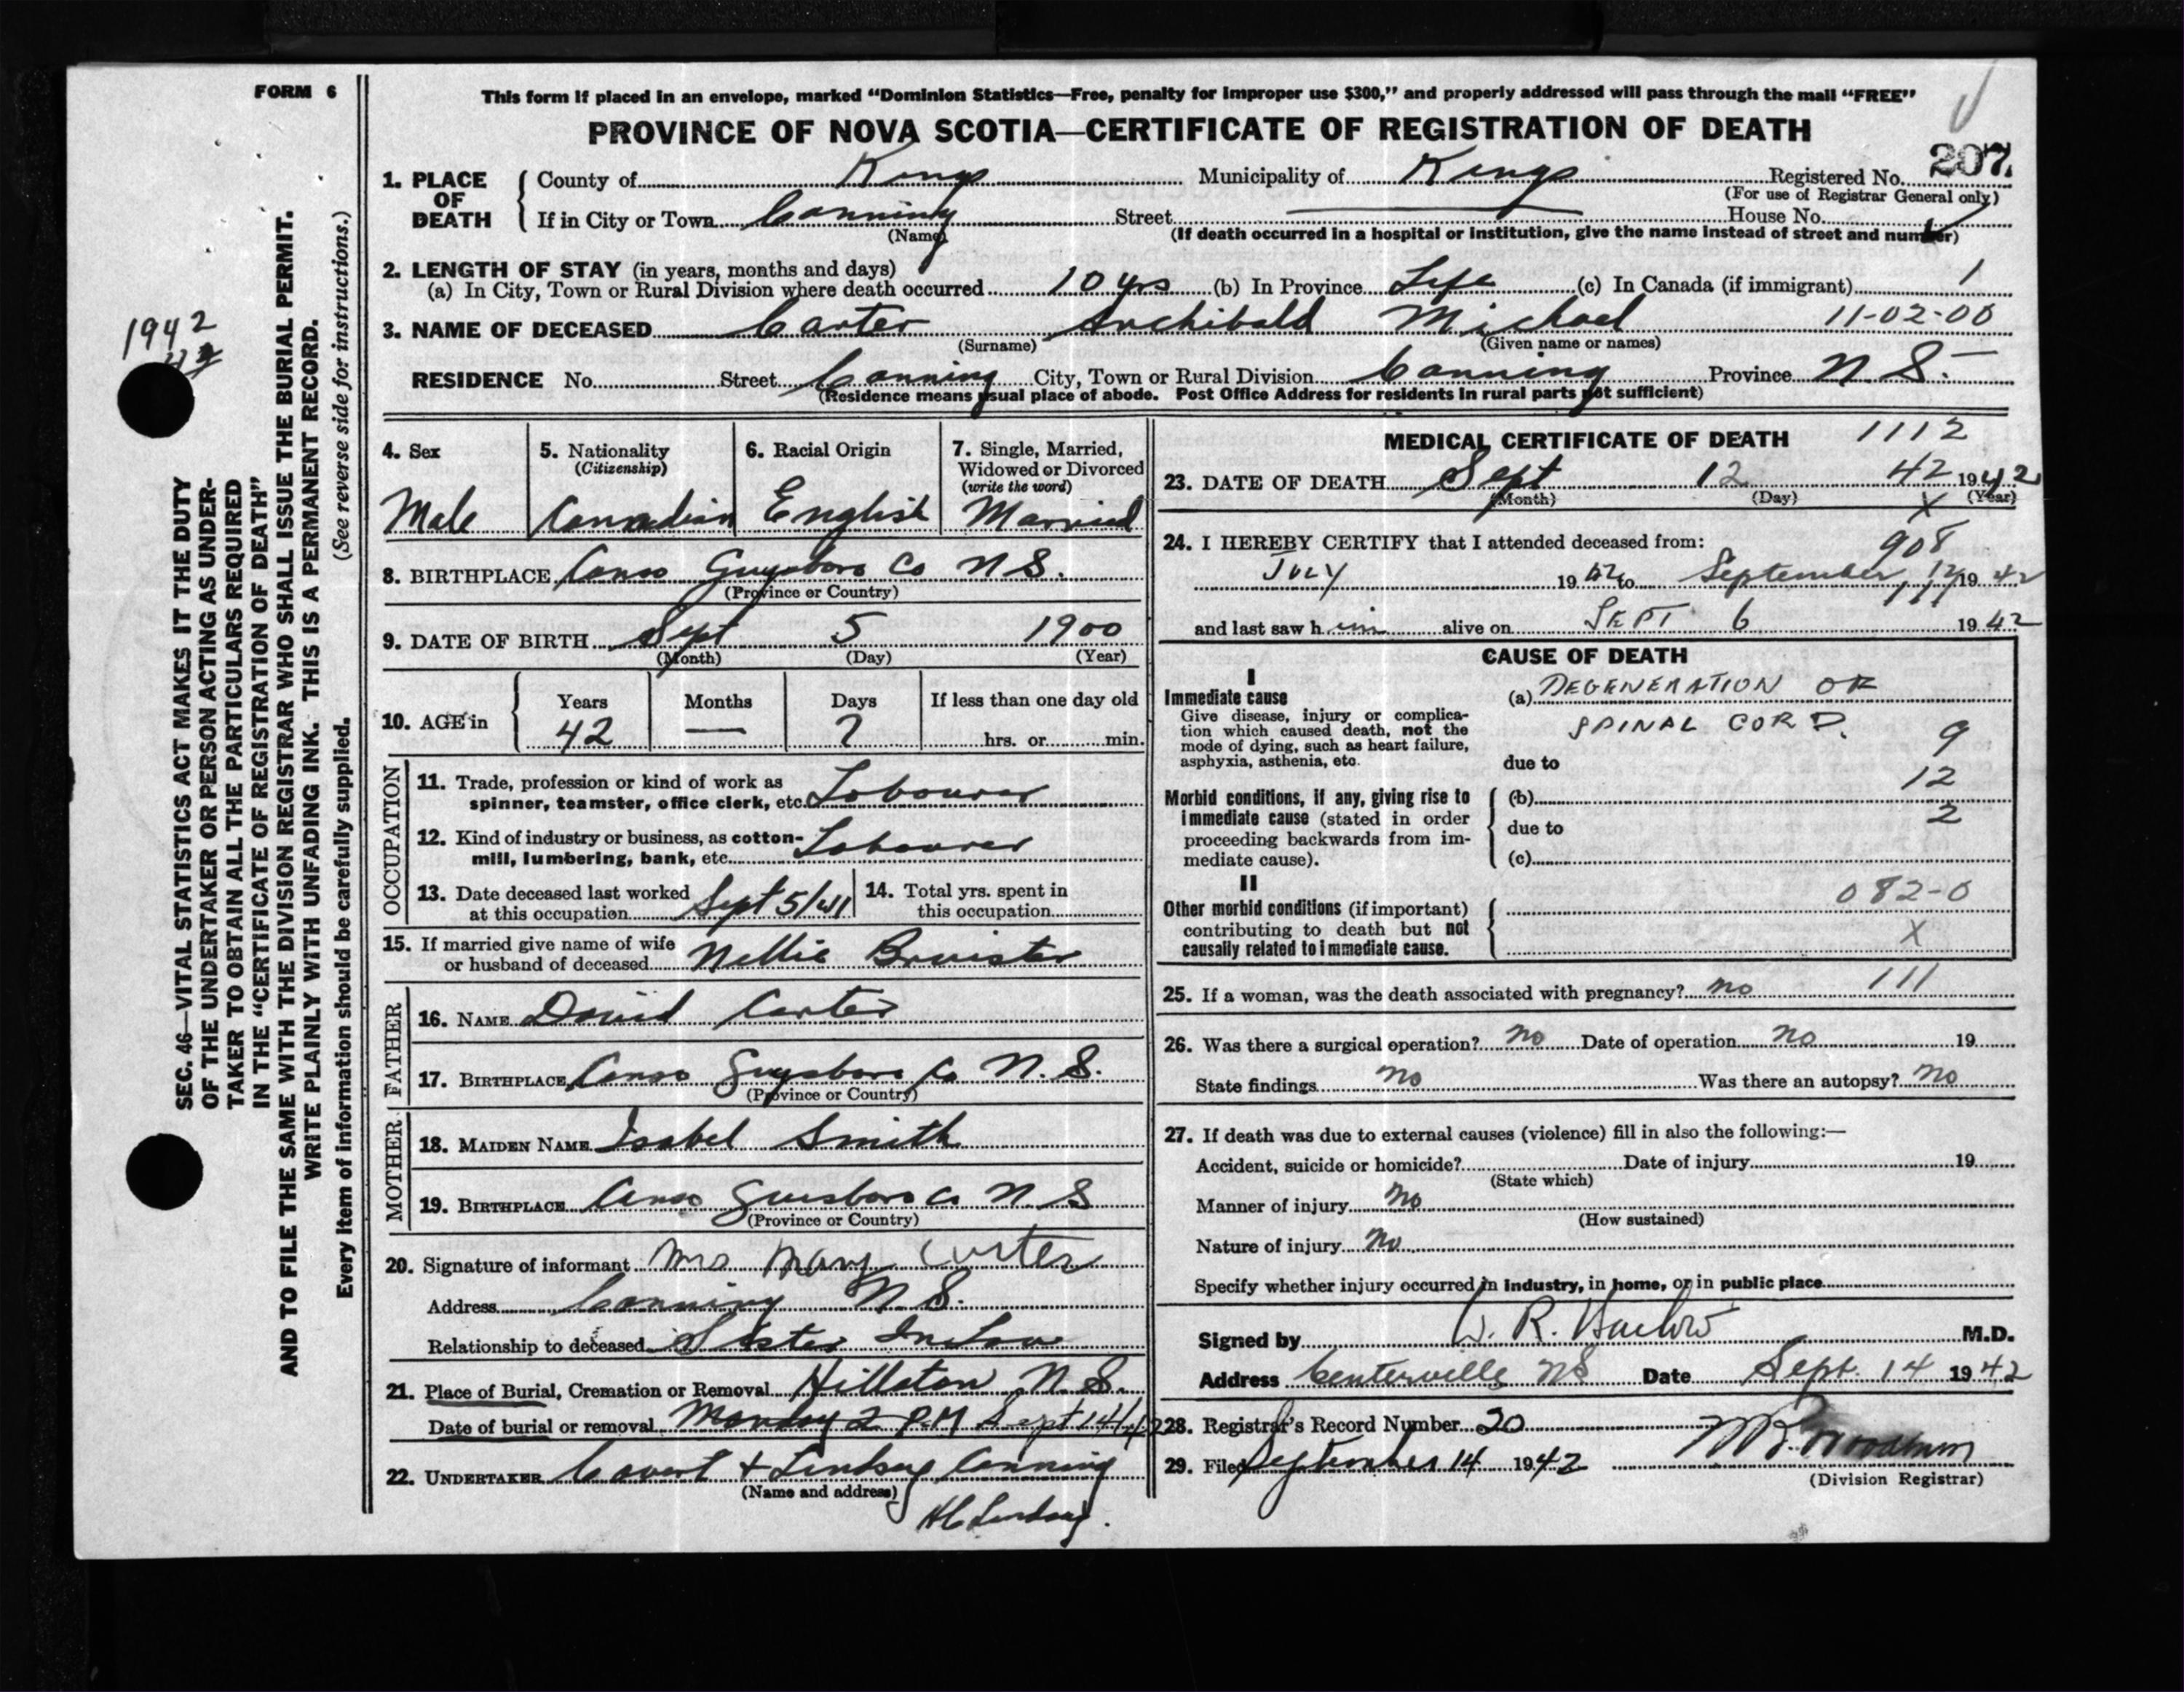 FORM 6
This form if placed in an envelope, marked “Dominion Statistics—Free, penalty for improper use $300,” and properly addressed will pass through the mail “FREE”
PROVINCE OF NOVA SCOTIA—CERTIFICATE OF REGISTRATION OF DEATH
207
1. PLACE OF DEATH County of Kings Municipality of Kings Registered No.
(For use of Registrar General only)
If in City or Town Canning Street House No.
(Name)
(If death occurred in a hospital or institution, give the name instead of street and number)
2. LENGTH OF STAY (in years, months and days)
(a) In City, Town or Rural Division where death occurred 10 yrs (b) In Province Life (c) In Canada (if immigrant) 1
3. NAME OF DECEASED Carter Archibald Michael 11-02-00
(Surname) (Given name or names)
RESIDENCE No. Street Canning City, Town or Rural Division Canning Province N.S.
(Residence means usual place of abode. Post Office Address for residents in rural parts not sufficient)
1942
SEC. 46—VITAL STATISTICS ACT MAKES IT THE DUTY
OF THE UNDERTAKER OR PERSON ACTING AS UNDER-
TAKER TO OBTAIN ALL THE PARTICULARS REQUIRED
IN THE “CERTIFICATE OF REGISTRATION OF DEATH”
AND TO FILE THE SAME WITH THE DIVISION REGISTRAR WHO SHALL ISSUE THE BURIAL PERMIT.
WRITE PLAINLY WITH UNFADING INK. THIS IS A PERMANENT RECORD.
Every item of information should be carefully supplied. (See reverse side for instructions.)
4. Sex 5. Nationality 6. Racial Origin 7. Single, Married,
(Citizenship) Widowed or Divorced
(write the word)
Male Canadian English Married
8. BIRTHPLACE Canso Guysboro Co N S.
(Province or Country)
9. DATE OF BIRTH Sept 5 1900
(Month) (Day) (Year)
10. AGE in Years Months Days If less than one day old
42 — 7 hrs. or min.
OCCUPATION
11. Trade, profession or kind of work as
spinner, teamster, office clerk, etc. Labourer
12. Kind of industry or business, as cotton-
mill, lumbering, bank, etc. Labourer
13. Date deceased last worked
at this occupation Sept 5/41
14. Total yrs. spent in
this occupation
15. If married give name of wife
or husband of deceased Nellie
FATHER
16. NAME David Carter
17. BIRTHPLACE Canso Guysboro Co N.S.
(Province or Country)
MOTHER
18. MAIDEN NAME Isabel Smith
19. BIRTHPLACE Canso Guisboro Co N S
(Province or Country)
20. Signature of informant Mrs Mary Carter
Address Canning N.S.
Relationship to deceased Sister In Law
21. Place of Burial, Cremation or Removal Hillaton N.S.
Date of burial or removal Monday 2 P.M Sept 14/42
22. UNDERTAKER Covert & Lindsay Canning
(Name and address)
H C Lindsay.
MEDICAL CERTIFICATE OF DEATH 1112
23. DATE OF DEATH Sept 12 42 1942
(Month) (Day) X (Year)
24. I HEREBY CERTIFY that I attended deceased from: 908
JULY 1942 to September 12 1942
111
and last saw him alive on SEPT 6 1942
CAUSE OF DEATH
I
Immediate cause
Give disease, injury or complica-
tion which caused death, not the
mode of dying, such as heart failure,
asphyxia, asthenia, etc.
(a) DEGENERATION OF
SPINAL CORD.
9
due to
12
Morbid conditions, if any, giving rise to
immediate cause (stated in order
proceeding backwards from im-
mediate cause).
(b)
2
due to
(c)
II
Other morbid conditions (if important)
contributing to death but not
causally related to immediate cause.
082-0
X
25. If a woman, was the death associated with pregnancy? no 111
26. Was there a surgical operation? no Date of operation no 19
State findings no Was there an autopsy? no
27. If death was due to external causes (violence) fill in also the following:—
Accident, suicide or homicide? Date of injury 19
(State which)
Manner of injury no
(How sustained)
Nature of injury no
Specify whether injury occurred in industry, in home, or in public place
Signed by M.D.
Address Centerville NS Date Sept. 14 1942
28. Registrar's Record Number 20
29. Filed September 14 1942
(Division Registrar)